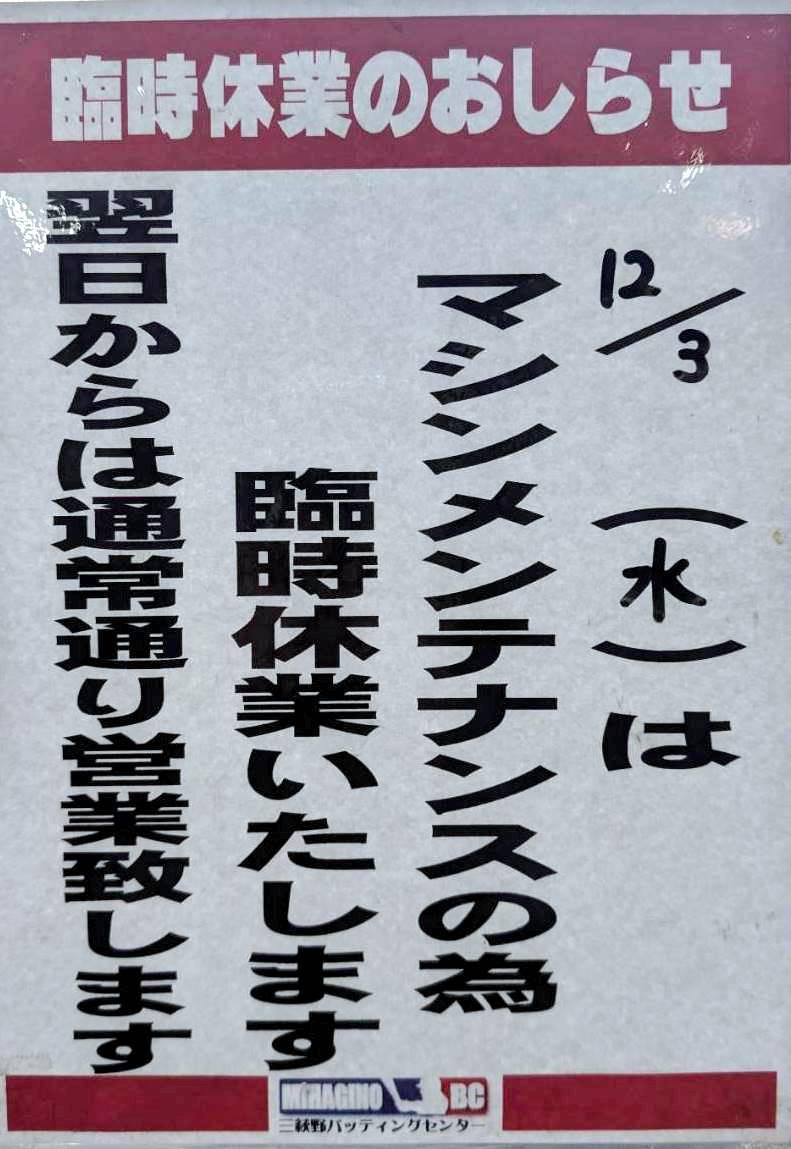 臨時休業のおしらせ
12/3（水）は
マシンメンテナンスの為
臨時休業いたします
翌日からは通常通り営業致します
MIHAGINO BC
三萩野バッティングセンター